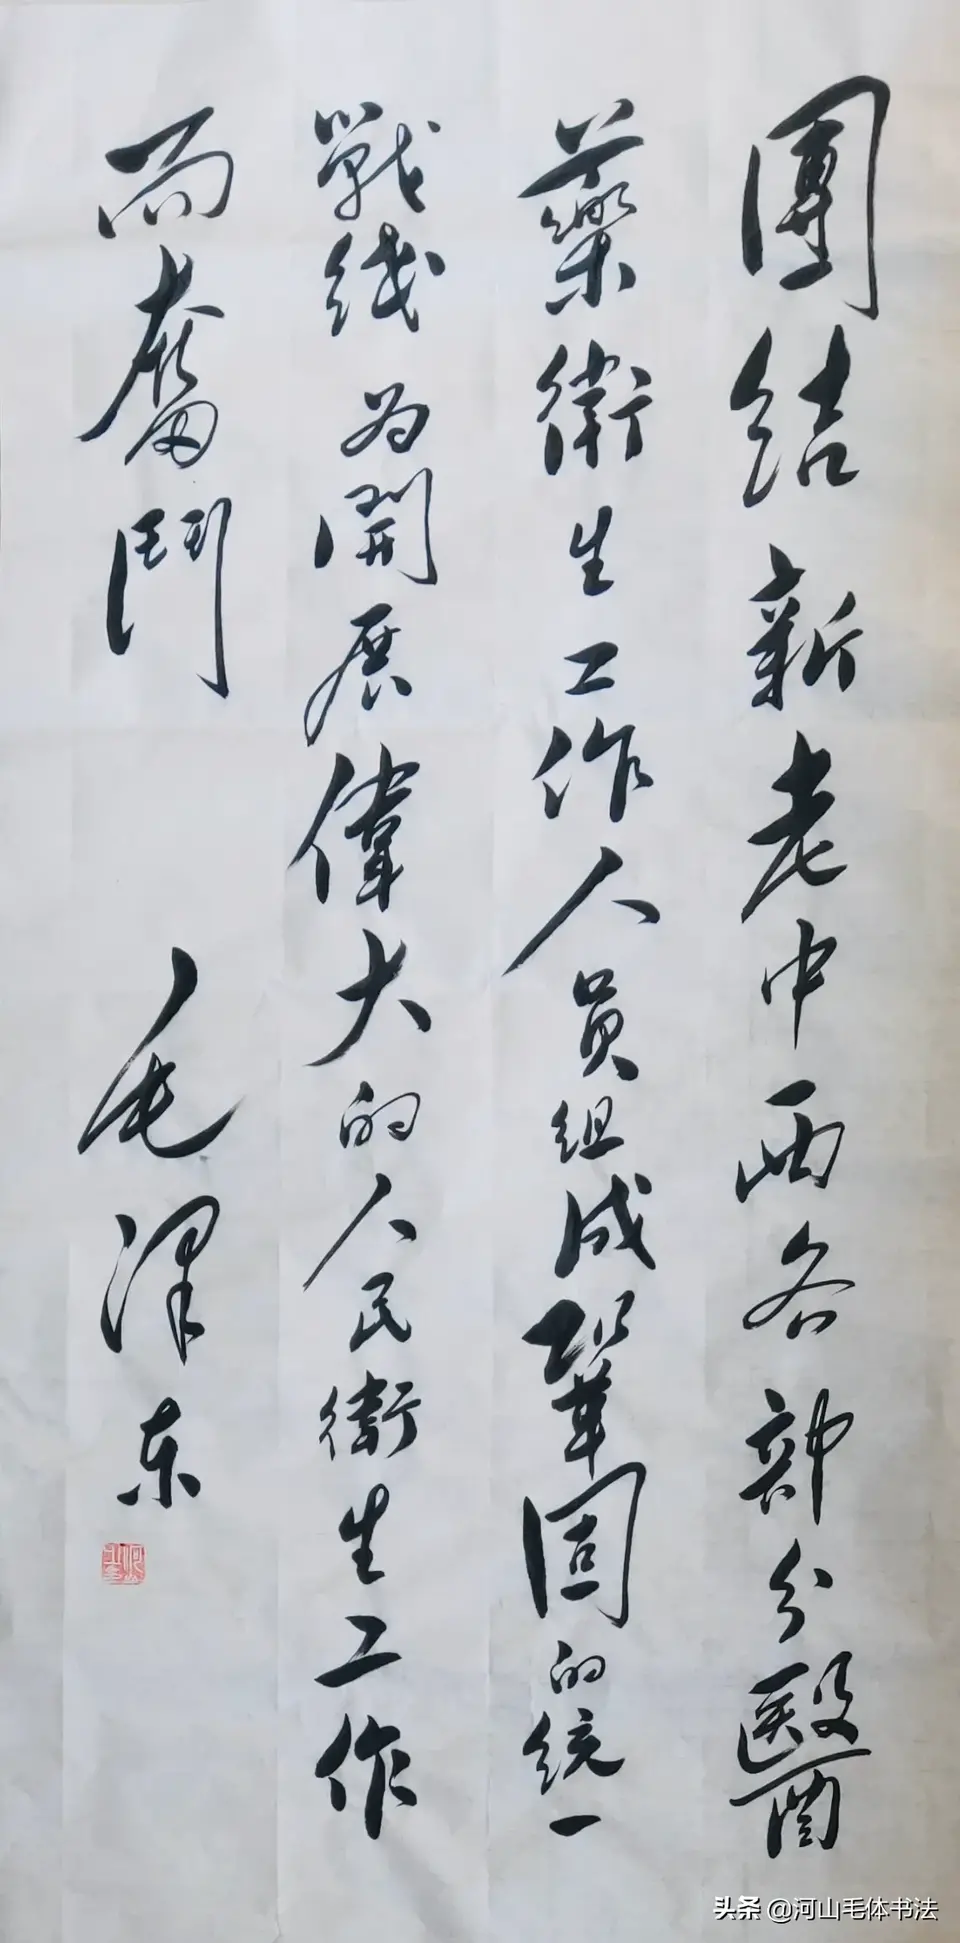 團结新老中西各部分醫
藥衛生工作人員组成鞏固的统一
戰线为開展偉大的人民衛生工作
而奮鬥
毛澤东
头条 @河山毛体书法